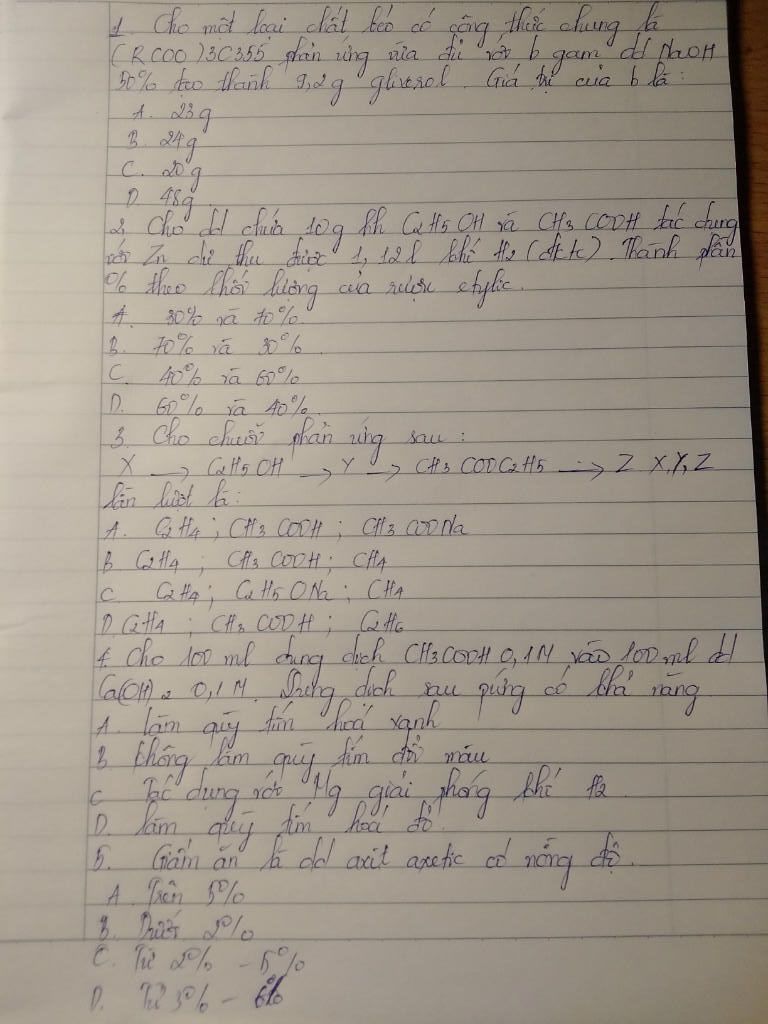 1. Cho một loại chất béo có công thức chung là
(RCOO)3C3S5 phản ứng vừa đủ với b gam dd NaOH
50% tạo thành 9,2g gliverol. Giá trị của b là:
A. 23g
B. 24g
C. 20g
D. 48g
2. Cho dd chứa 10g hh C2H5OH và CH3COOH tác dụng
với Zn dư thu được 1,12l khí H2 (đktc). Thành phần
% theo khối lượng của rượu etylic.
A. 30% và 70%
B. 70% và 30%.
C. 40% và 60%
D. 60% và 40%.
3. Cho chuỗi phản ứng sau:
X → C2H5OH → Y → CH3COOC2H5 → Z X,Y,Z
lần lượt là:
A. C2H4; CH3COOH; CH3COONa
B. C2H4; CH3COOH; CH4
C. C2H4; C2H5ONa; CH4
D. C2H4; CH3COOH; C2H6
4. Cho 100 ml dung dịch CH3COOH 0,1M vào 100 ml dd
Ca(OH)2 0,1M. Dung dịch sau pứng có khả năng
A. làm quỳ tím hoá xanh
B. không làm quỳ tím đổi màu
C. Tác dụng với Mg giải phóng khí H2.
D. làm quỳ tím hoá đỏ.
5. Giấm ăn là dd axit axetic có nồng độ.
A. Trên 5%
B. Dưới 2%
C. Từ 2% - 5%
D. Từ 3% - 6%